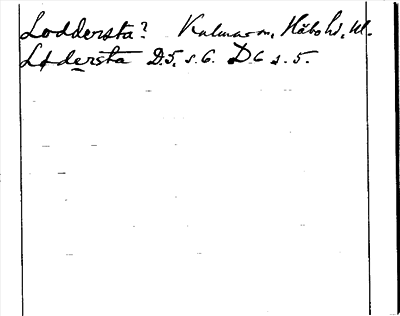 Loddersta? Kalmar sn, Håbo hd, Upl.
Lødersta D.5, s. 6. D 6 s. 5.